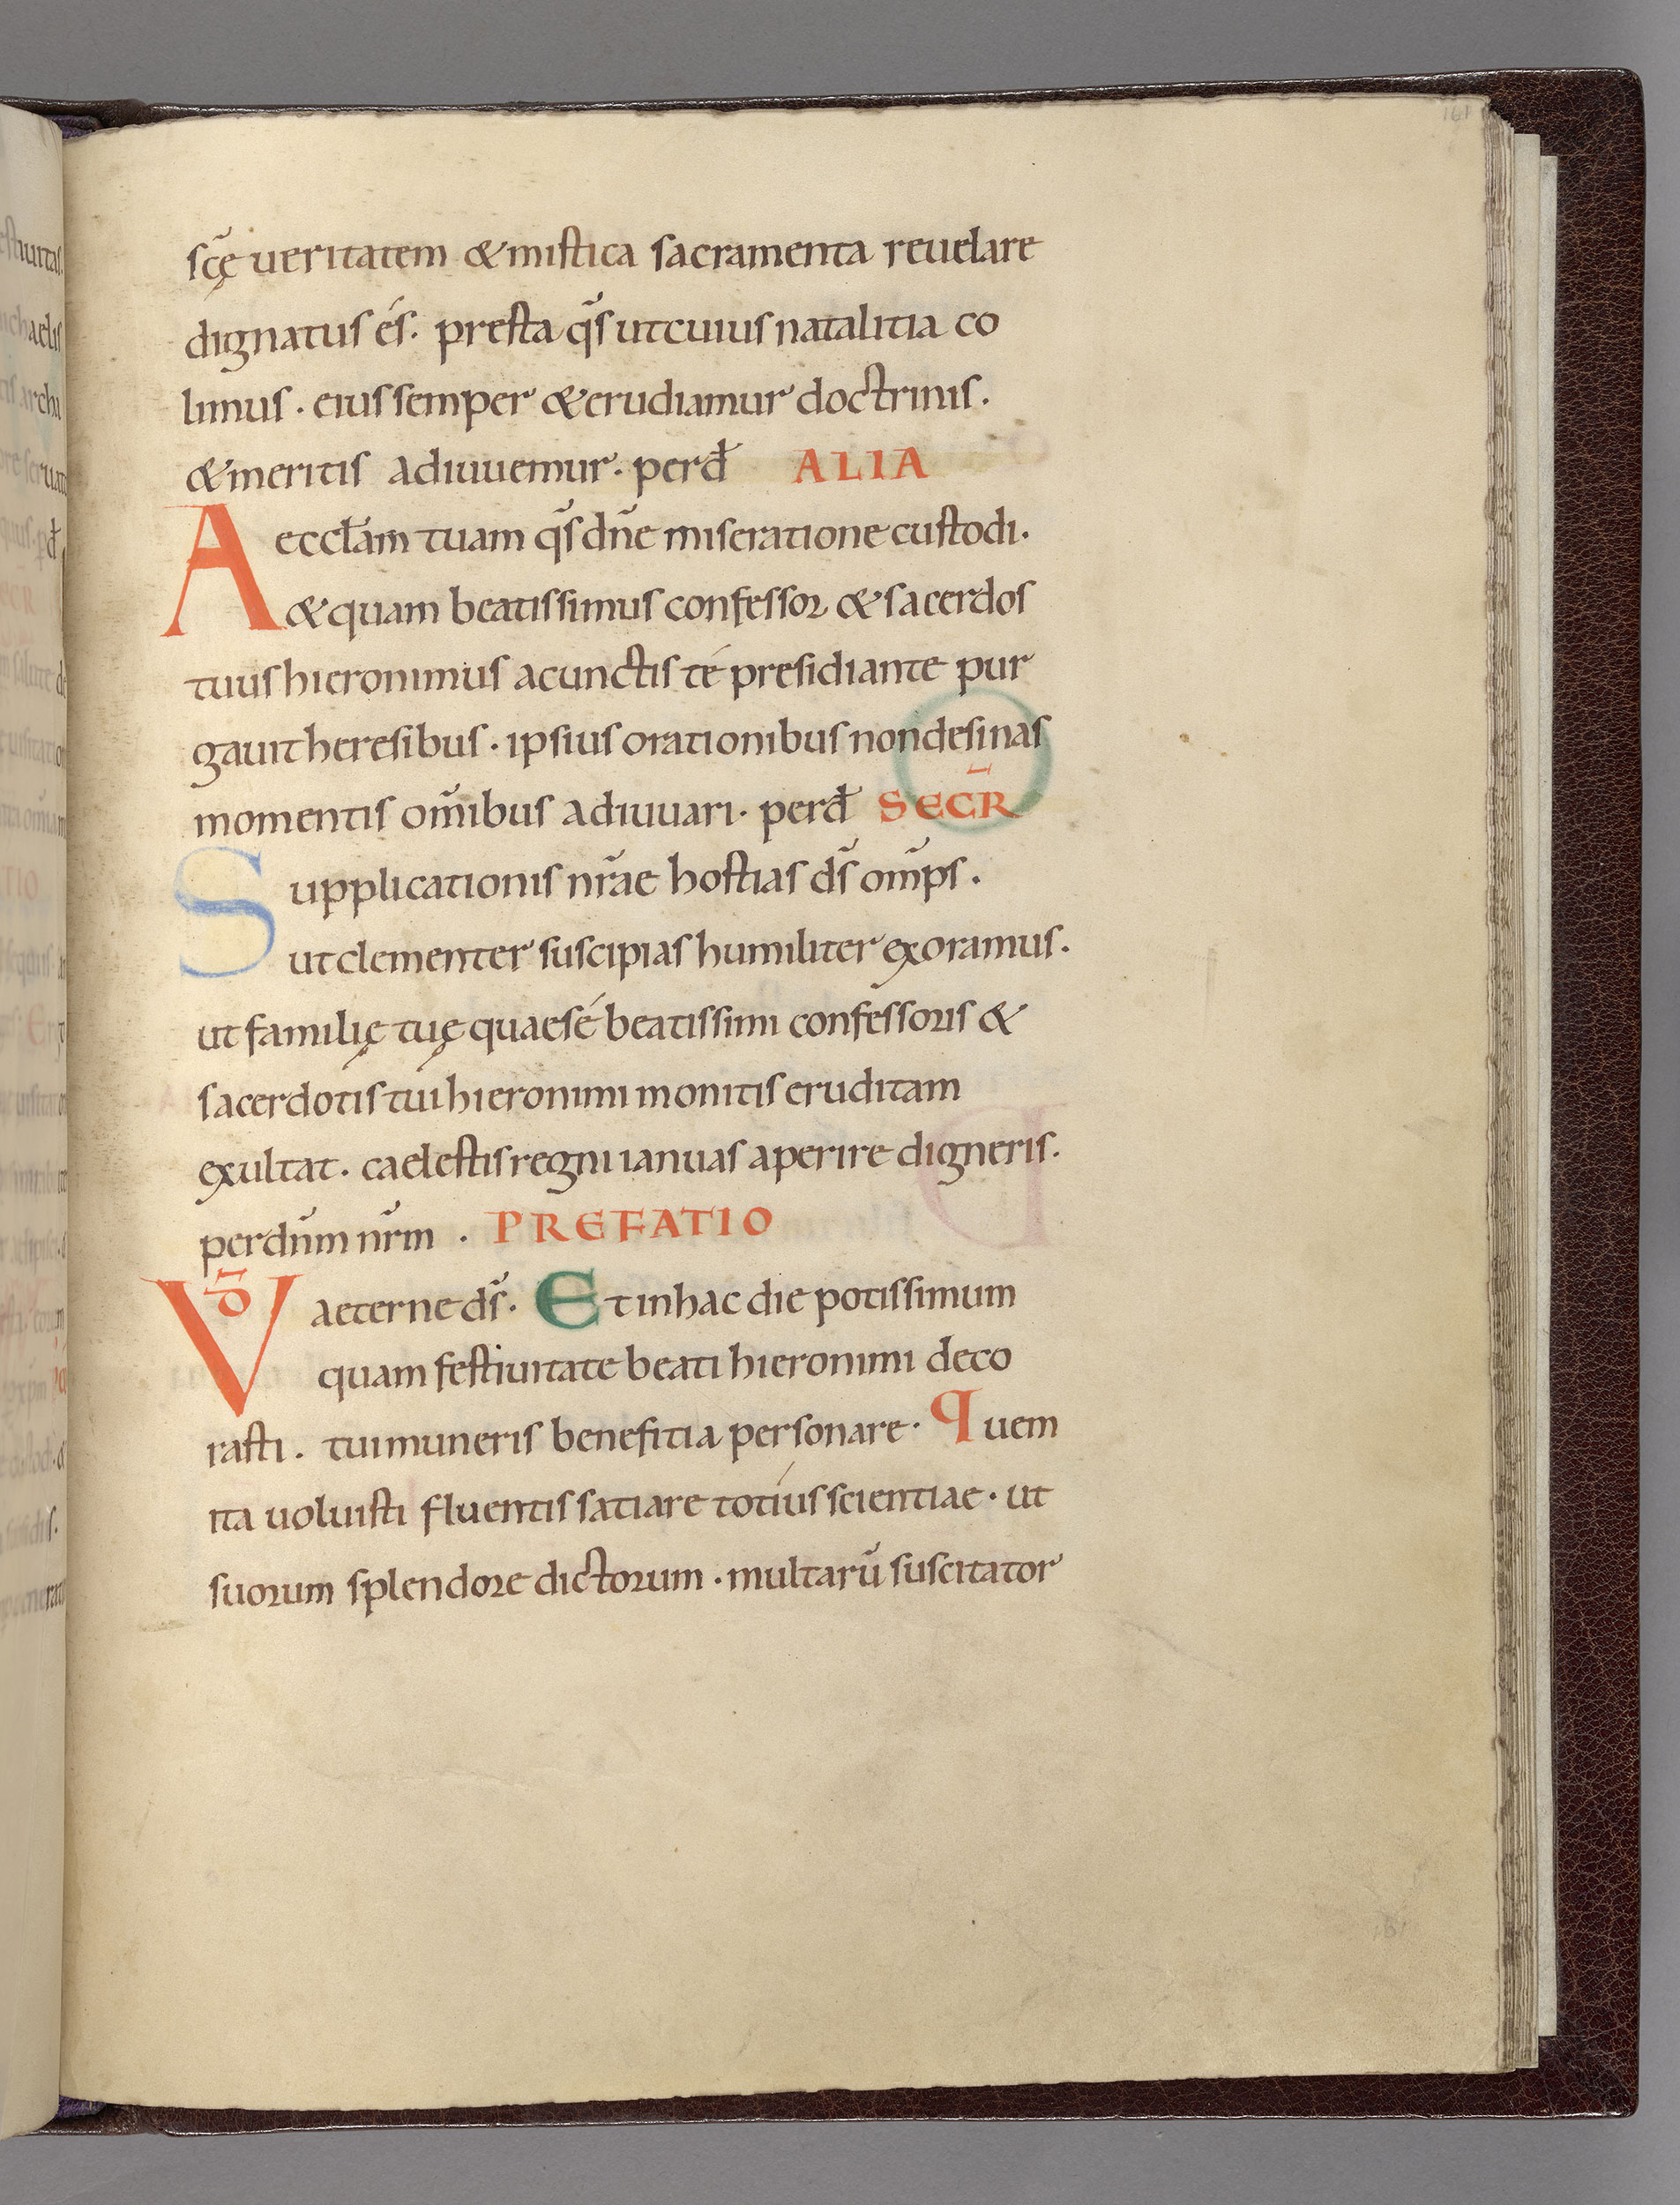 sc̄ę ueritatem & mistica sacramenta reuelare
dignatus és. presta q̄s ut cuius natalitia co
limus · eius semper & erudiamur doctrinis.
& meritis adiuuemur · per đ ALIA
Aeccƚam tuam q̄s dn̄e miseratione custodi.
& quam beatissimus confessor & sacerdos
tuus hieronimus a cunctis té presidiante pur
gauit heresibus · ipsius orationibus non desinas
momentis om̄ibus adiuuari · per đ SECR̄
Supplicationis nr̄ae hostias ds̄ om̄ps .
ut clementer suscipias humiliter exoramus.
ut familię tuę quae sé beatissimi confessoris &
sacerdotis tui hieronimi monitis eruditam
exultat · caelestis regni ianuas aperire digneris.
per dn̄m nr̄m . PREFATIO
VD̄ aeterne ds̄ · Et in hac die potissimum
quam festiuitate beati hieronimi deco
rasti . tui muneris benefitia personare · Quem
ita uoluisti fluentis satiare totíus scientiae · ut
suorum splendore dictorum · multarū suscitator
161